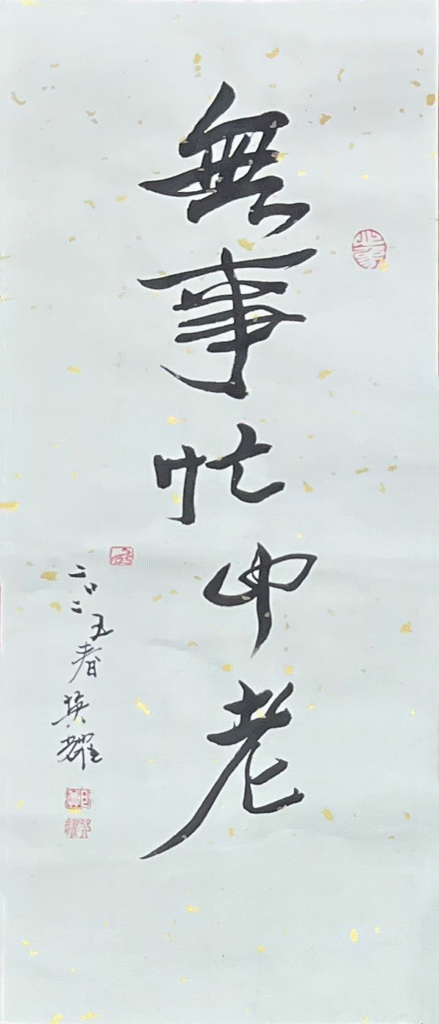 無事忙中老
二〇二五春英耀